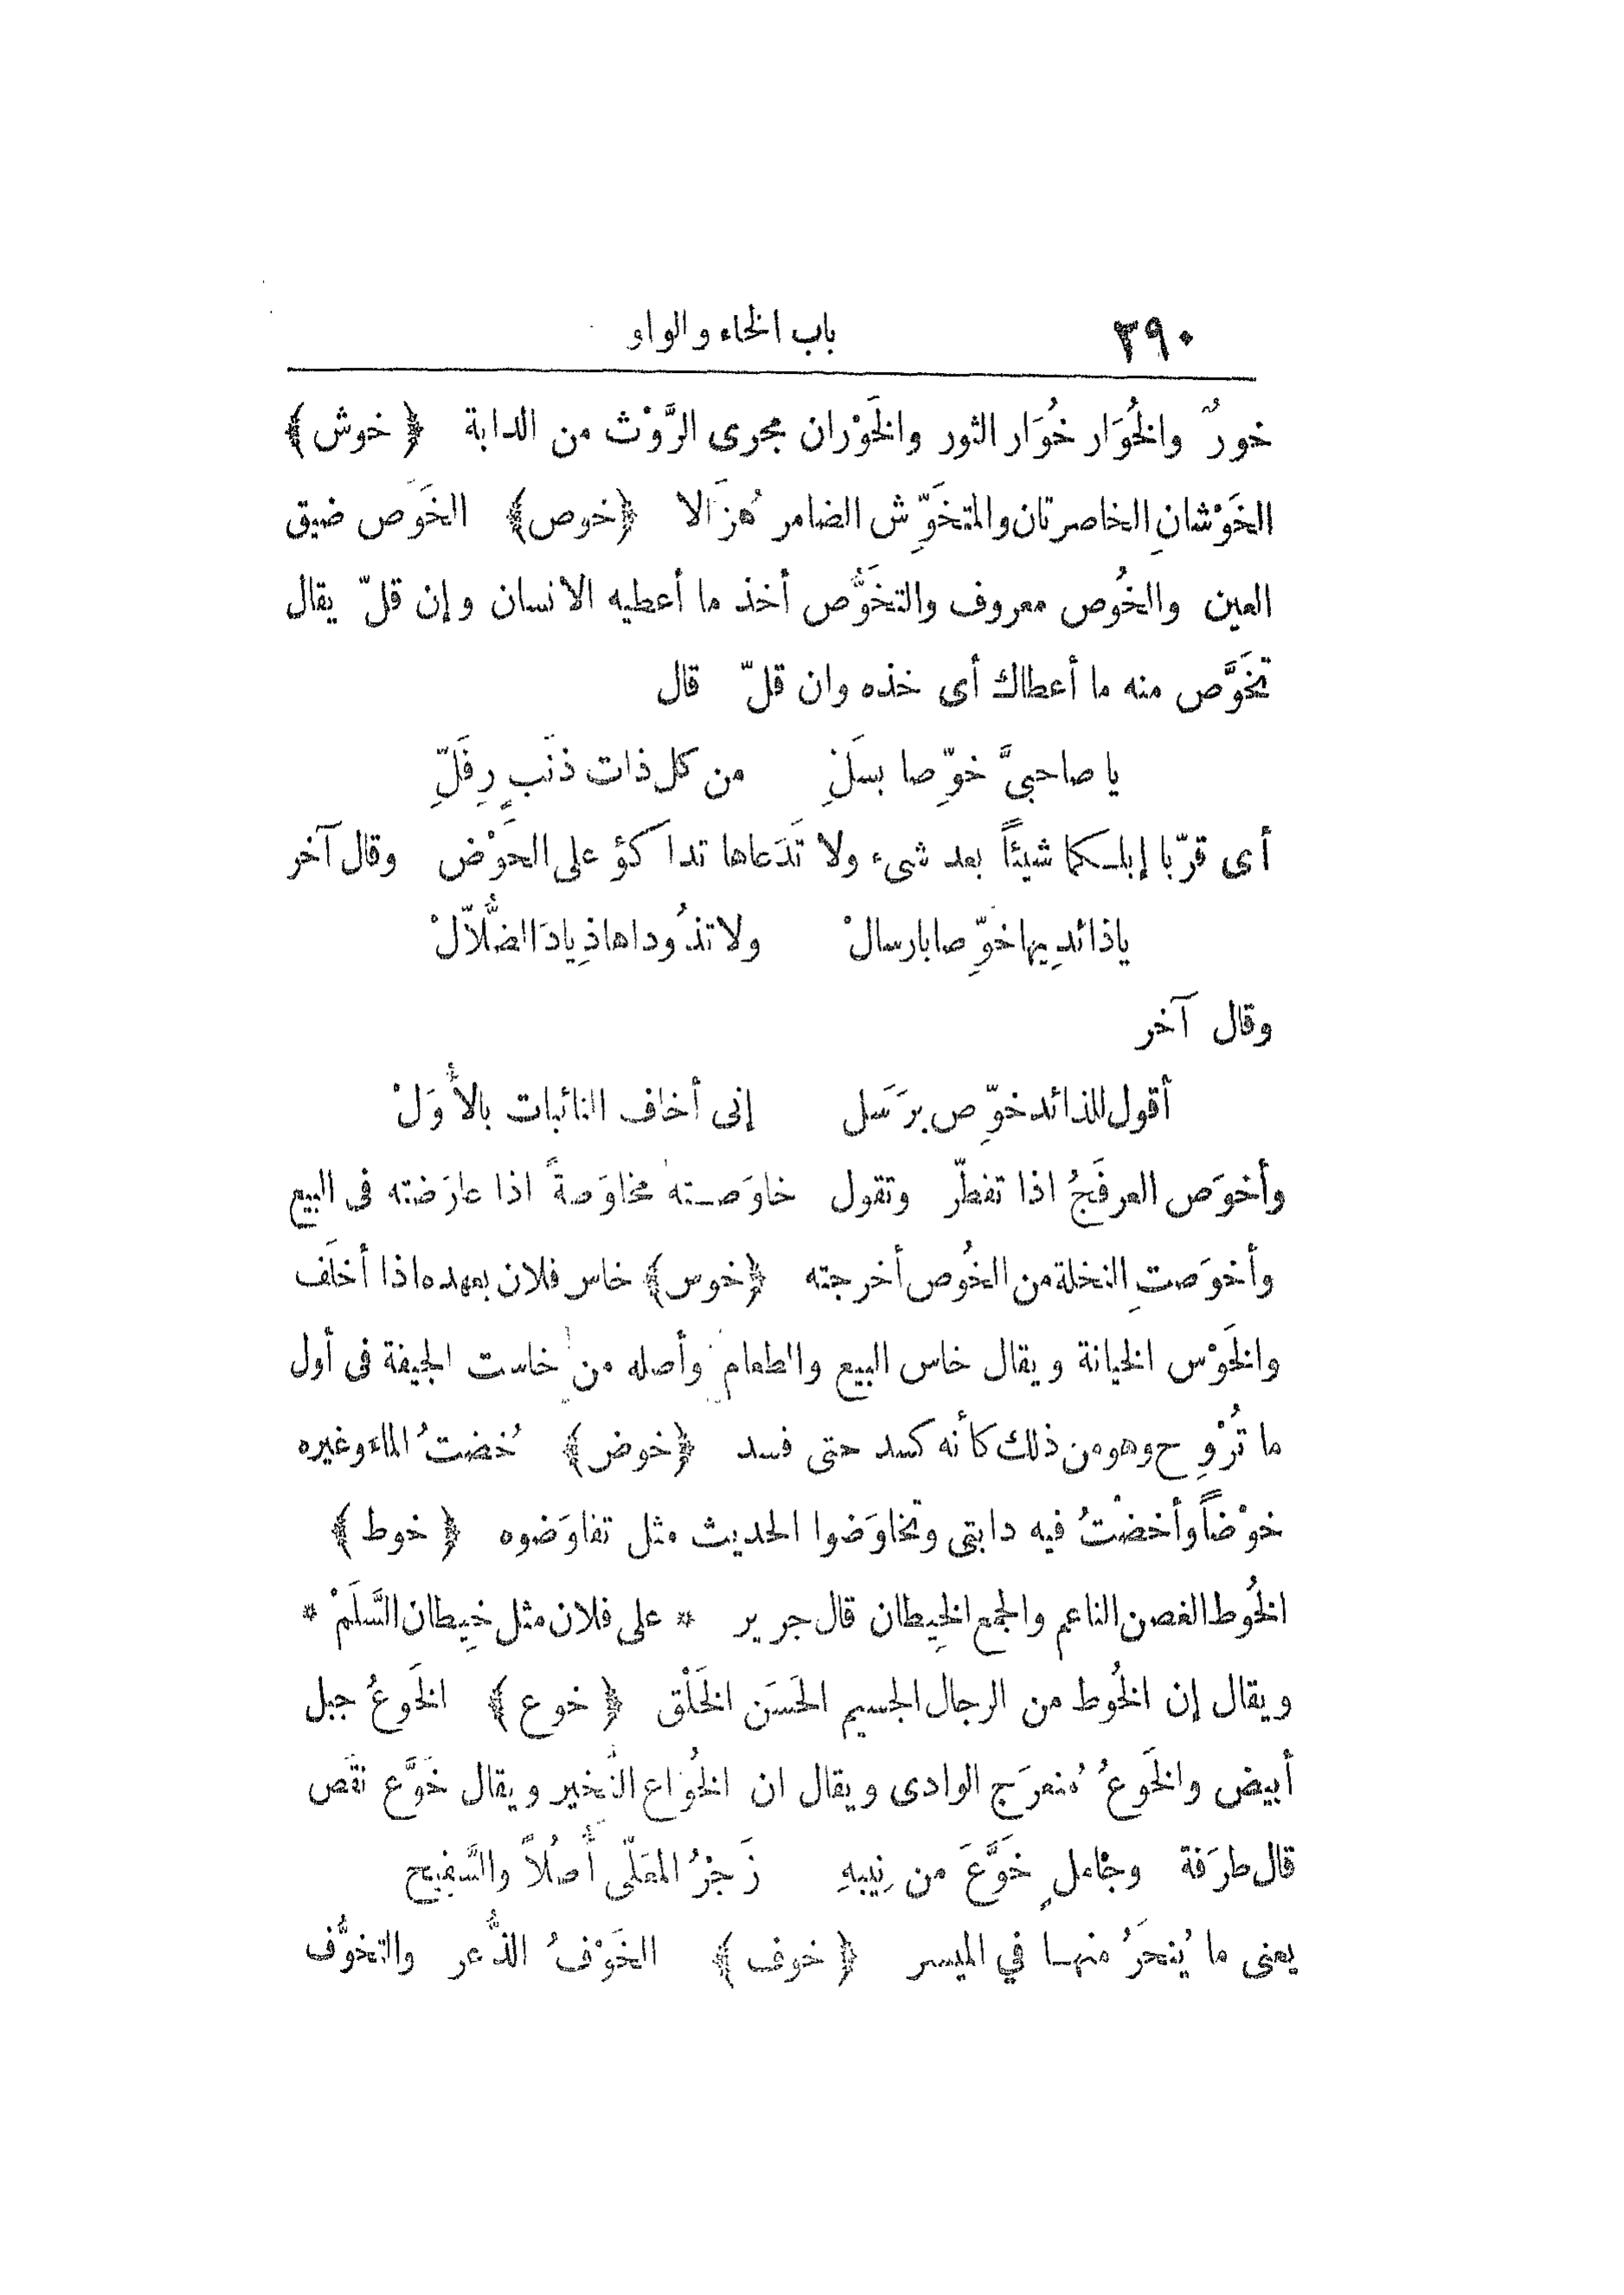 ٢٩٠ باب الخاء والواو
خورٌ والخُوَار خُوَار الثور والخَوْران مجرى الرَّوْث من الدابة ﴿ خوش ﴾
الخَوْشانِ الخاصرتان والمتخَوِّش الضامر هُزَالا ﴿خوص﴾ الخَوَص ضيق
العين والخُوص معروف والتخَوُّص أخذ ما أعطيه الانسان وإن قلّ يقال
تخَوَّص منه ما أعطاك أى خذه وان قلّ قال
يا صاحبىَّ خوِّصا بسَلِّ من كل ذات ذنَبٍ رِفَلِّ
أى قرّبا إبلـكما شيئاً بعد شىء ولا تَدَعاها تداكؤ على الحَوْض وقال آخر
ياذائدِيها خوِّصا بارسالْ ولا تذُوداها ذِيادَ الضُّلاّلْ
وقال آخر
أقول للذائد خوِّص برَسَل إنى أخاف النائبات بالأُوَلْ
وأخوَص العرفَجُ اذا تفطّر وتقول خاوَصـته مخاوَصةً اذا عارَضته فى البيع
وأخوَصتِ النخلة من الخُوص أخرجته ﴿خوس﴾ خاس فلان بعهده اذا أخلَف
والخَوْس الخيانة ويقال خاس البيع والطعام وأصله من خاست الجيفة فى أول
ما تُرْوِح وهو من ذلك كأنه كسد حتى فسد ﴿خوض﴾ خُضتُ الماء وغيره
خوْضاً وأخضْتُ فيه دابتى وتخاوَضوا الحديث مثل تفاوَضوه ﴿ خوط ﴾
الخُوط الغصن الناعم والجمع الخِيطان قال جرير * على فلان مثل خِيطان السَّلَمْ *
ويقال إن الخُوط من الرجال الجسيم الحَسَن الخَلْق ﴿ خوع ﴾ الخَوعُ جبل
أبيض والخَوعُ مُنعرَج الوادى ويقال ان الخُوَاع النَّخير ويقال خَوَّع نقَص
قال طرَفة وجاملٍ خَوَّعَ من نِيبهِ زَجْرُ المعَلّى أُصُلاً والسَّفِيح
يعنى ما يُنحَرُ منهـا في الميسر ﴿ خوف ﴾ الخَوْفُ الذُّعر والتخوُّف